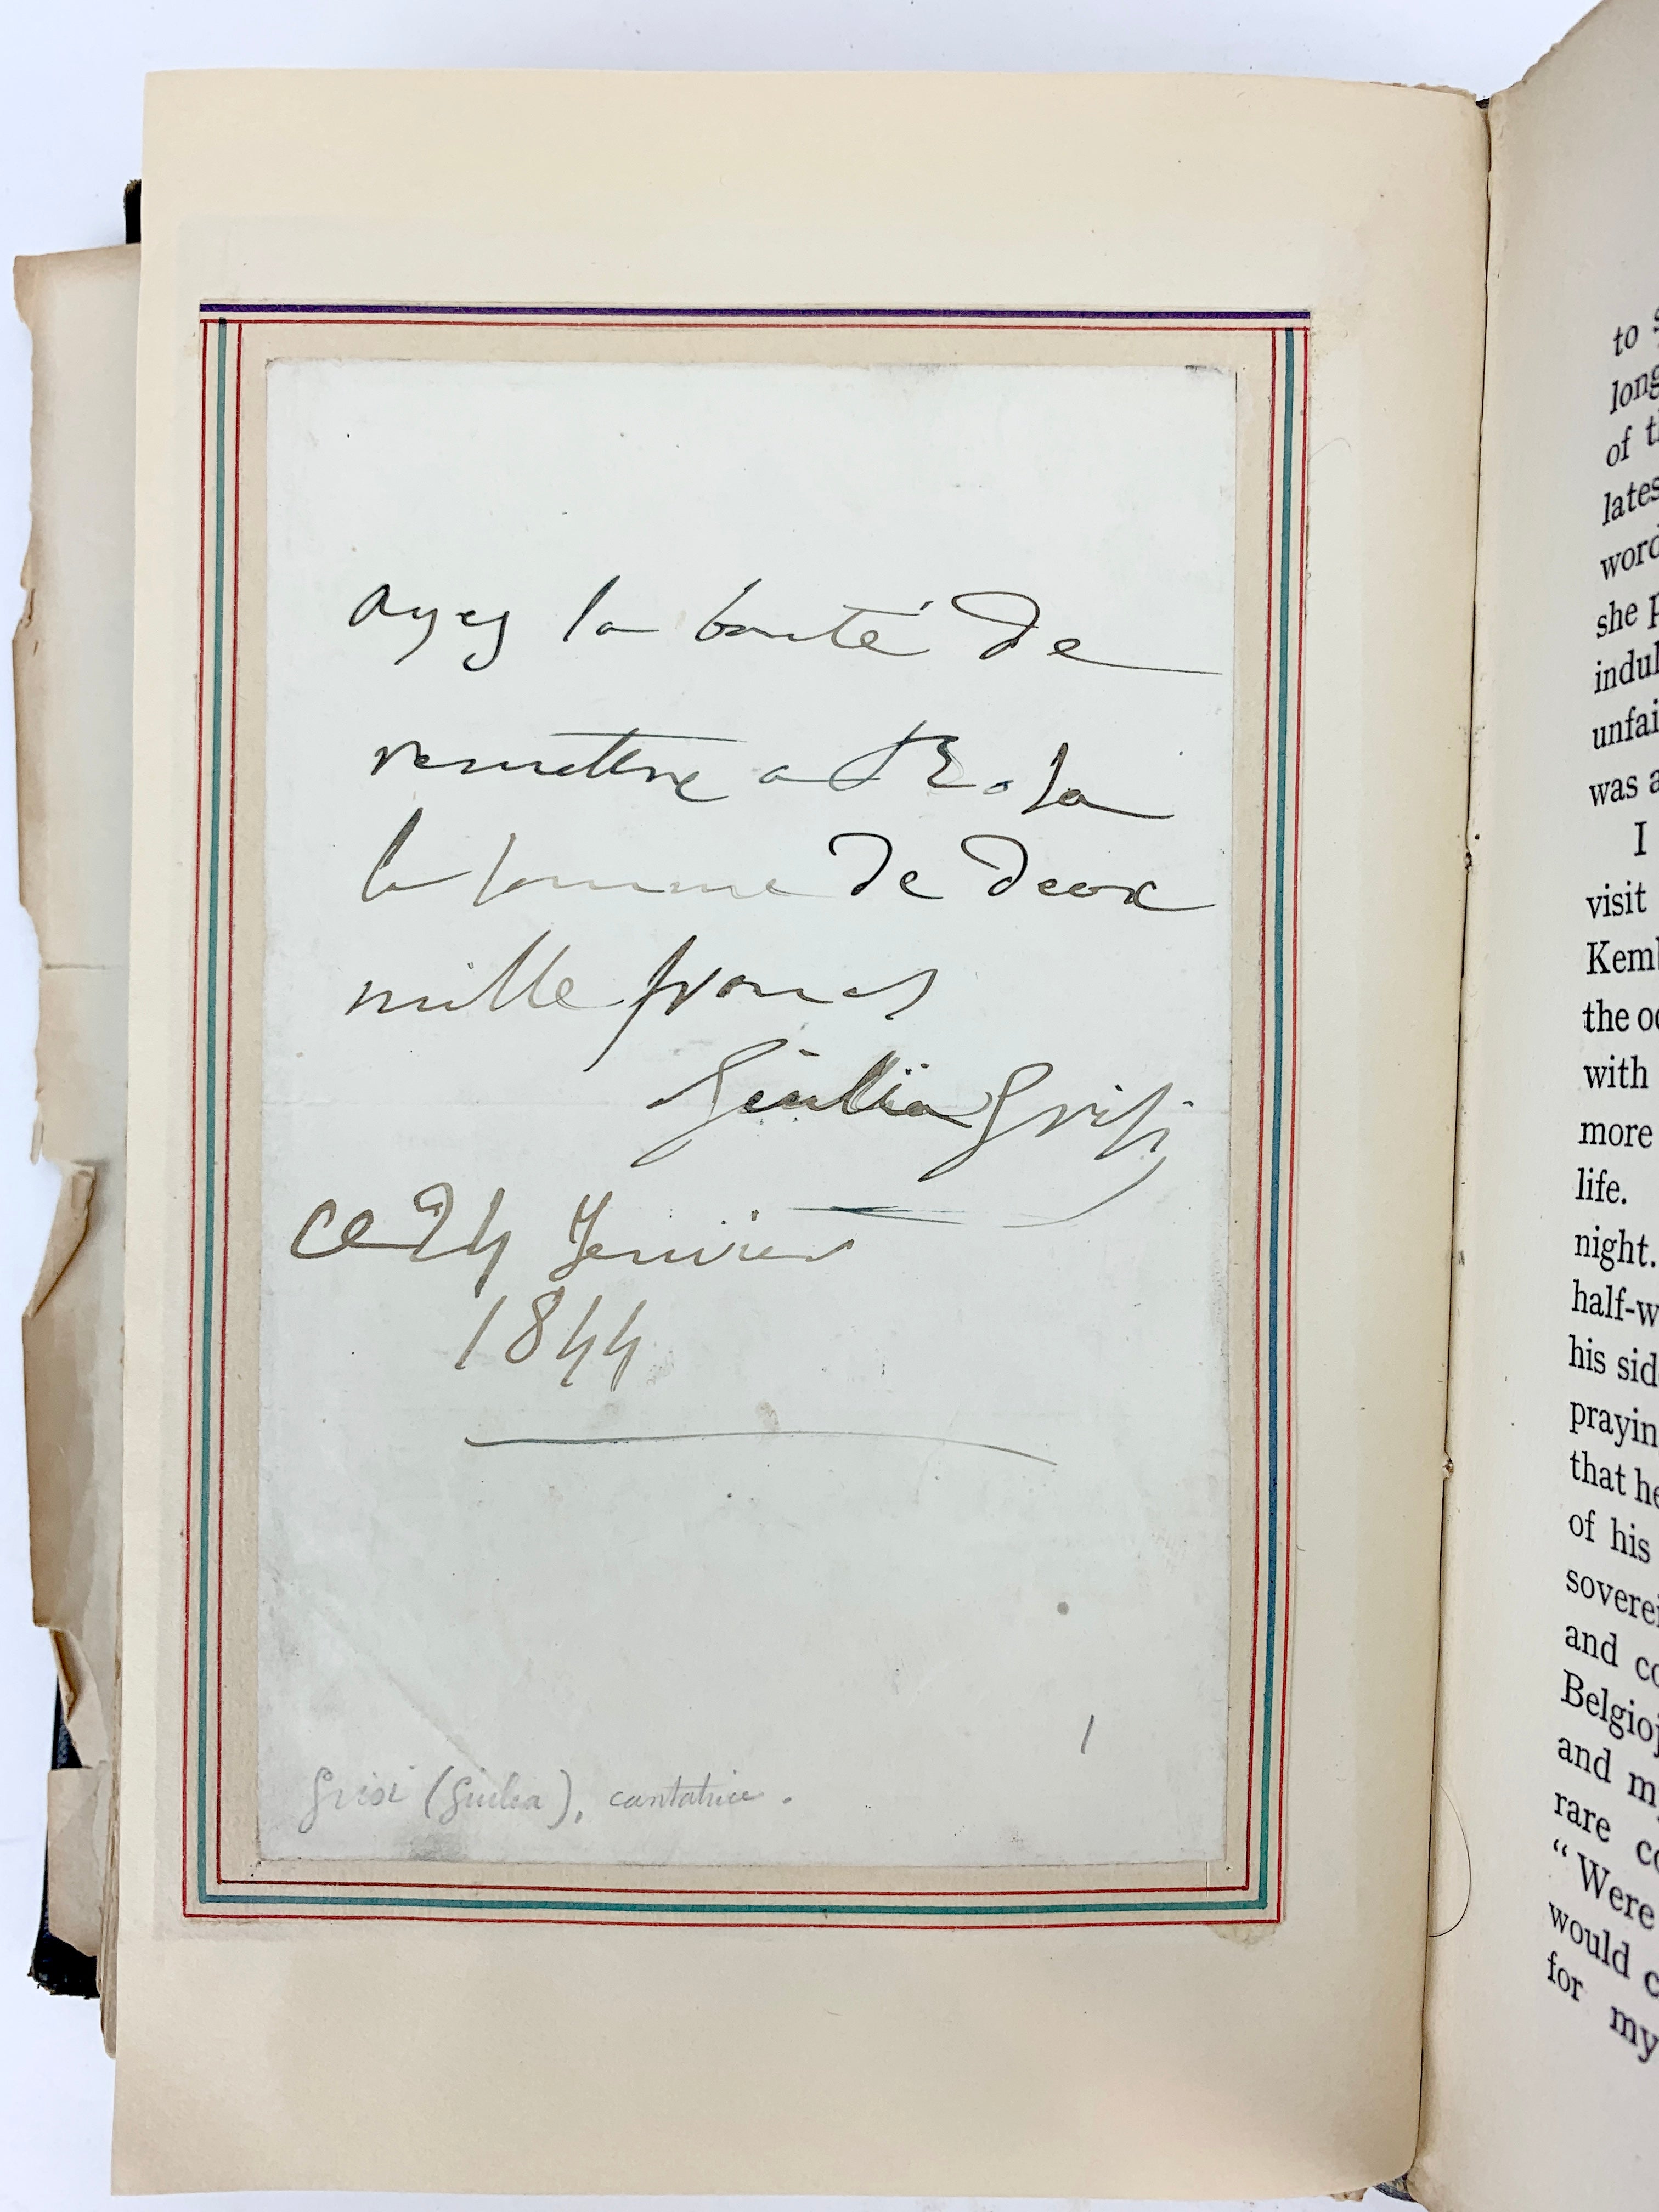 ayez la bonté de
remettre a
la somme de deux
mille francs
Giulia Grisi
ce 24 Jenvier
1844
1
Grisi (Giulia), cantatrice.
to
long
of
lates
word
she p
indul
unfai
was a
I
visit
Keml
the
with
more
life.
night.
half-w
his sid
prayin
that he
of his
soverei
and co
Belgioj
and m
rare co
“Were
would c
for my